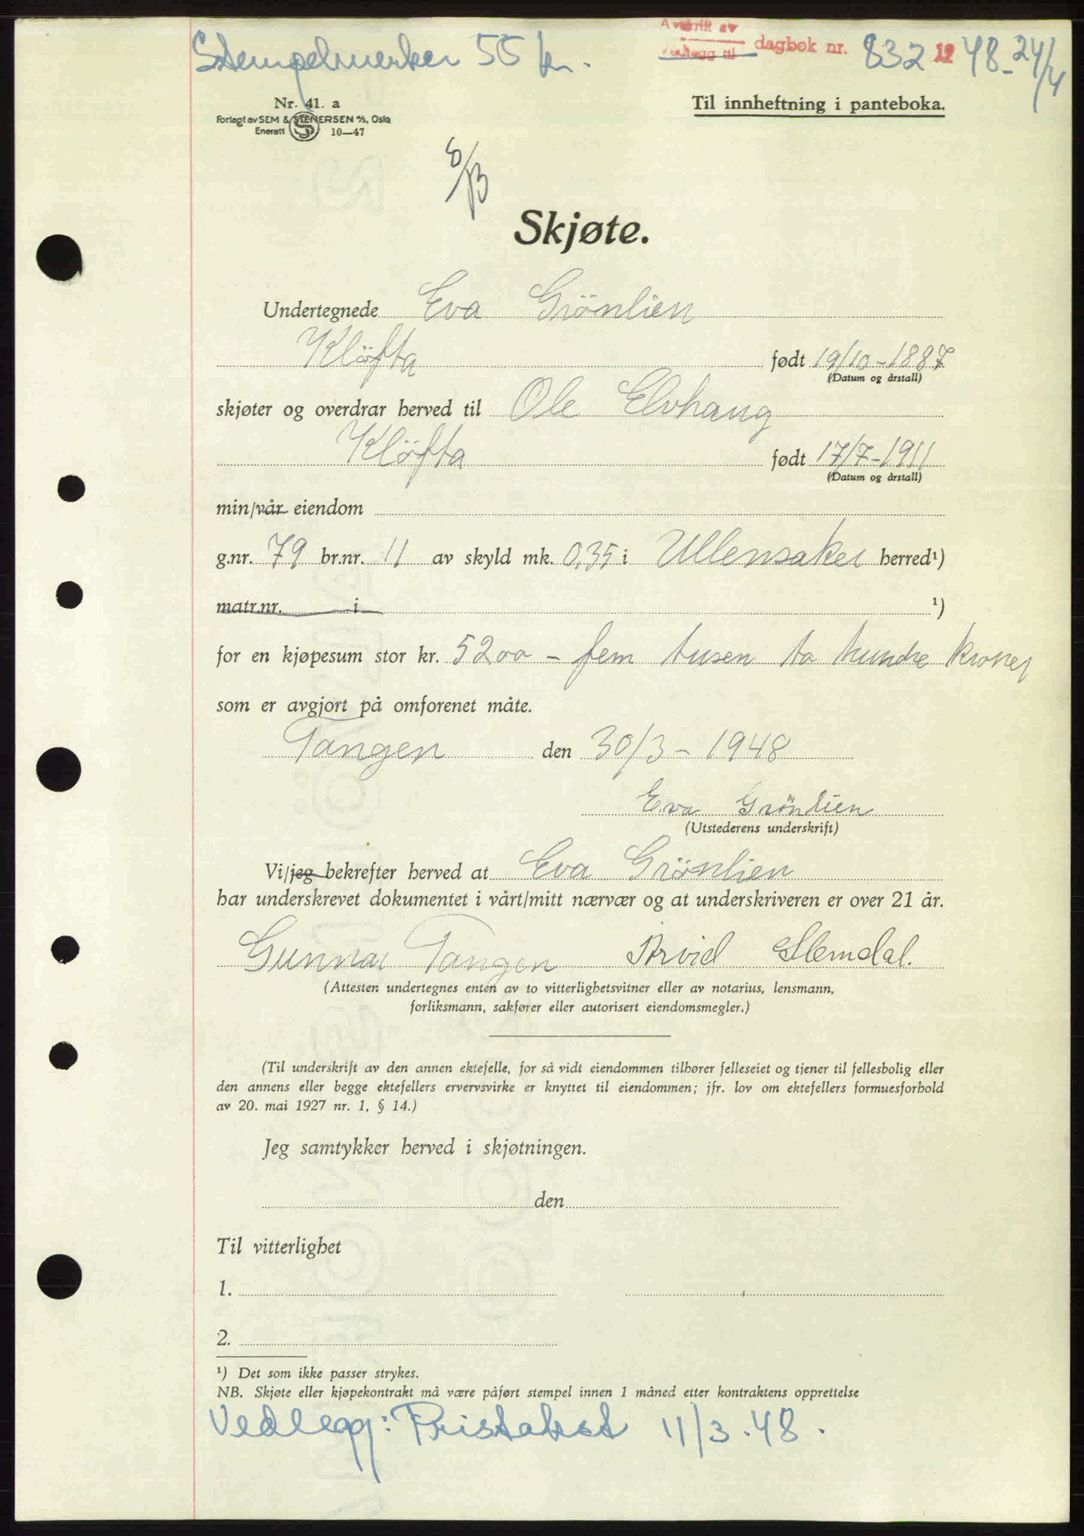 Stempelmerker 55 kr.
Avskrift av
Vedlegg til dagbok nr. 832 19 48 - 24/4
Nr. 41. a
Forlagt av SEM & STENERSEN A/S, Oslo
Enerett S 10—47
Til innheftning i panteboka.
Skjøte.
Undertegnede Eva Grönlien
Klöfta født 19/10-1887
(Datum og årstall)
skjøter og overdrar herved til Ole Elvhaug
Klöfta født 17/7-1911
(Datum og årstall)
min/vår eiendom
g.nr. 79 br.nr. 11 av skyld mk. 0,35 i Ullensaker herred¹)
matr.nr. i ¹)
for en kjøpesum stor kr. 5200 - fem tusen to hundre kroner
som er avgjort på omforenet måte.
Tangen den 30/3 - 1948
Eva Grönlien
(Utstederens underskrift)
Vi/jeg bekrefter herved at Eva Grönlien
har underskrevet dokumentet i vårt/mitt nærvær og at underskriveren er over 21 år.
Gunnar Tangen Arvid Slemdal.
(Attesten undertegnes enten av to vitterlighetsvitner eller av notarius, lensmann,
forliksmann, sakfører eller autorisert eiendomsmegler.)
(Til underskrift av den annen ektefelle, for så vidt eiendommen tilhører felleseiet og tjener til fellesbolig eller
den annens eller begge ektefellers ervervsvirke er knyttet til eiendommen; jfr. lov om ektefellers formuesforhold
av 20. mai 1927 nr. 1, § 14.)
Jeg samtykker herved i skjøtningen.
den
Til vitterlighet
1.
2.
¹) Det som ikke passer strykes.
NB. Skjøte eller kjøpekontrakt må være påført stempel innen 1 måned etter kontraktens opprettelse
Vedlegg: Pristakst 11/3.48.